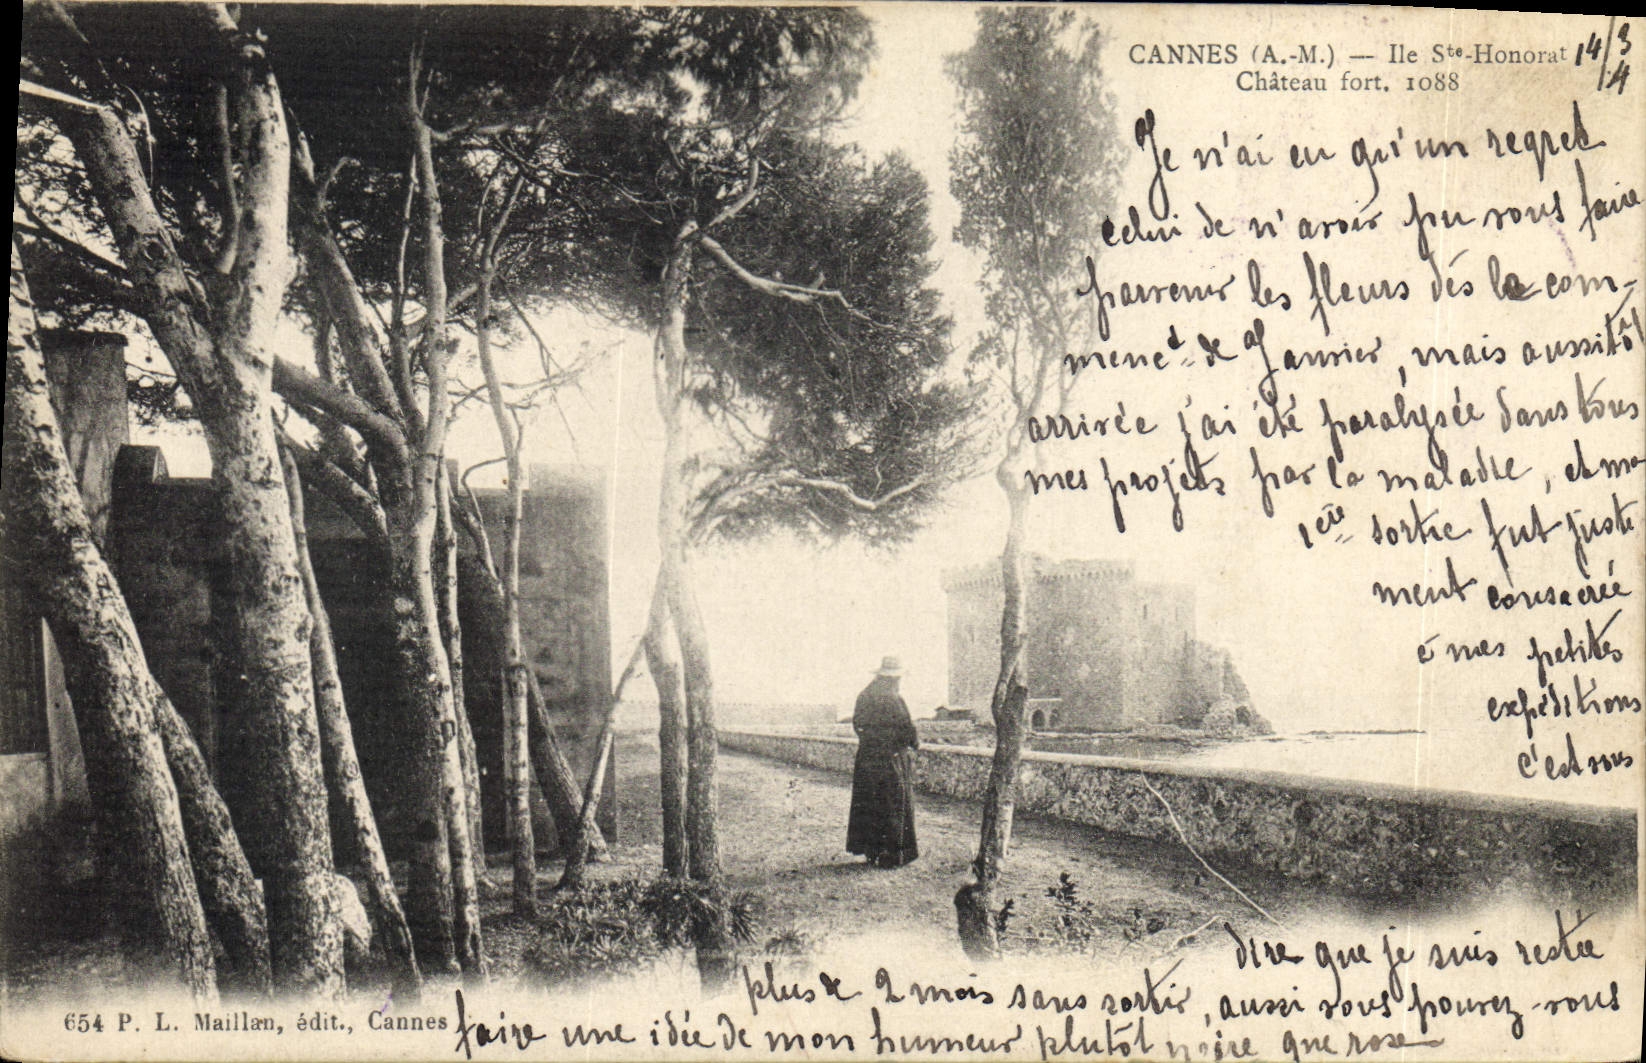 CANNES (A.-M.) — Ile Ste-Honorat
Château fort. 1088
14/3
/.4
Je n'ai eu qu'un regret
celui de n'avoir pu vous faire
parvenir les fleurs dés le com-
mencd de Janvier, mais aussitôt
arrivée j'ai été paralysée dans tous
mes projets par la maladie, et ma
1ère sortie fut juste
ment consacrée
à mes petites
expéditions
c'est vous
dire que je suis restée
plus de 2 mois sans sortir, aussi vous pouvez-vous
faire une idée de mon humeur plutôt noire que rose
654 P. L. Maillan, édit., Cannes